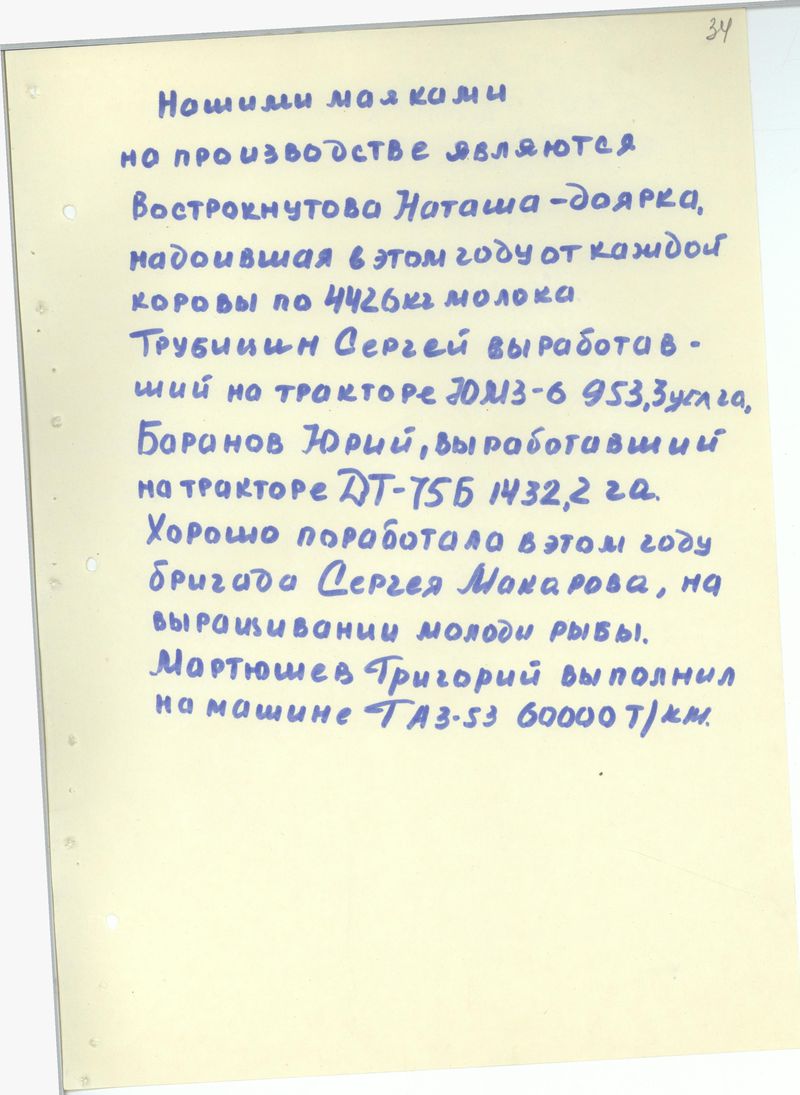 34
Нашими маяками
на производстве являются
Вострокнутова Наташа-доярка,
надоившая в этом году от каждой
коровы по 4426кг молока
Трубицин Сергей выработав-
ший на тракторе ЮМЗ-6 953,3усл га,
Баранов Юрий, выработавший
на тракторе ДТ-75Б 1432,2 га.
Хорошо поработала в этом году
бригада Сергея Макарова, на
выращивании молоди рыбы.
Мартюшев Григорий выполнил
на машине ГАЗ-53 60000 т/км.